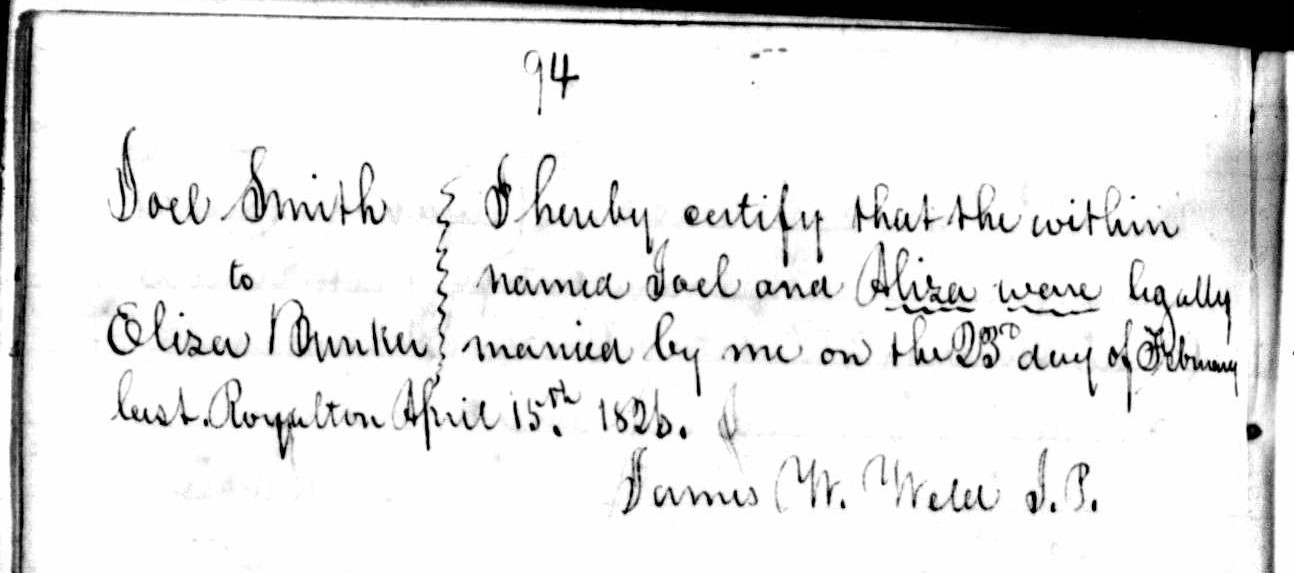 94
Joel Smith } I hereby certify that the within
to } named Joel and Aliza were legally
Eliza Bunker } married by me on the 23rd day of February
last. Royalton April 15th. 1826.
James W. Weld J.P.